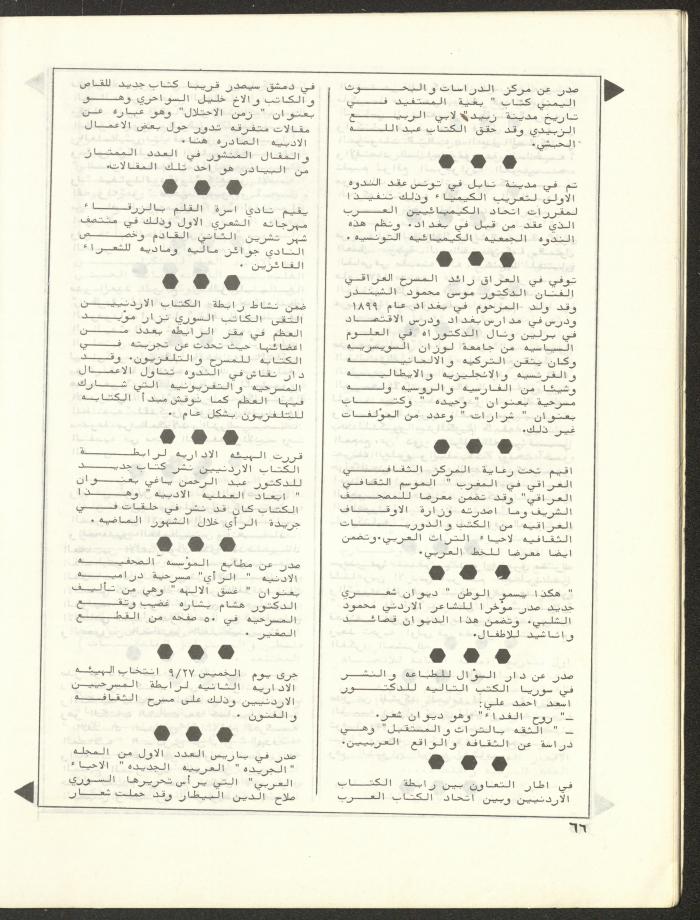 صدر عن مركز الدراسات والبحوث
اليمني كتاب " بغية المستفيد في
تاريخ مدينة زبيد" لابي الربيع
الزبيدي وقد حقق الكتاب عبد الله
الحبشي.
تم في مدينة نابل في تونس عقد الندوه
الاولى لتعريب الكيمياء وذلك تنفيذا
لمقررات اتحاد الكيميائيين العرب
الذي عقد من قبل في بغداد. ونظم هذه
الندوه الجمعيه الكيميائيه التونسيه.
توفي في العراق رائد المسرح العراقي
الفنان الدكتور موسى محمود الشيندر
وقد ولد المرحوم في بغداد عام ١٨٩٩
ودرس في مدارس بغداد ودرس الاقتصاد
في برلين ونال الدكتوراه في العلوم
السياسيه من جامعة لوزان السويسريه
وكان يتقن التركيه والالمانيه
والفرنسيه والانجليزيه والايطاليه
وشيئا من الفارسيه والروسيه وله
مسرحية بعنوان " وحيده " وكتاب
بعنوان " شرارات " وعدد من المؤلفات
غير ذلك.
اقيم تحت رعاية المركز الثقافي
العراقي في المغرب " الموسم الثقافي
العراقي" وقد تضمن معرضا للمصحف
الشريف وما اصدرته وزارة الاوقاف
العراقيه من الكتب والدوريات
الثقافيه لاحياء التراث العربي. وتضمن
ايضا معرضا للخط العربي.
" هكذا يسمو الوطن " ديوان شعري
جديد صدر مؤخرا للشاعر الاردني محمود
الشلبي. وتضمن هذا الديوان قصائد
واناشيد للاطفال.
صدر عن دار السؤال للطباعه والنشر
في سوريا الكتب التاليه للدكتور
اسعد احمد علي:
ـ" روح الفداء" وهو ديوان شعر.
ـ " الثقه بالتراث والمستقبل" وهي
دراسة عن الثقافه والواقع العربيين.
في اطار التعاون بين رابطة الكتاب
الاردنيين وبين اتحاد الكتاب العرب
في دمشق سيصدر قريبا كتاب جديد للقاص
والكاتب والاخ خليل السواحري وهو
بعنوان " زمن الاحتلال" وهو عباره عن
مقالات متفرقه تدور حول بعض الاعمال
الادبيه الصادره هنا.
والمقال المنشور في العدد الممتاز
من البيادر هو احد تلك المقالات.
يقيم نادي اسرة القلم بالزرقاء
مهرجانه الشعري الاول وذلك في منتصف
شهر تشرين الثاني القادم وخصص
النادي جوائز ماليه وماديه للشعراء
الفائزين .
ضمن نشاط رابطة الكتاب الاردنيين
التقى الكاتب السوري نزار مؤيد
العظم في مقر الرابطه بعدد من
اعضائها حيث تحدث عن تجربته في
الكتابه للمسرح والتلفزيون. وقد
دار نقاش في الندوه تناول الاعمال
المسرحيه والتفزيونيه التي شارك
فيها العظم كما نوقش مبدأ الكتابه
للتلفزيون بشكل عام .
قررت الهيئه الاداريه لرابطة
الكتاب الاردنيين نشر كتاب جديد
للدكتور عبد الرحمن ياغي بعنوان
" ابعاد العمليه الادبيه" وهذا
الكتاب كان قد نشر في حلقات في
جريدة الرأي خلال الشهور الماضيه.
صدر عن مطابع المؤسسه الصحفيه
الادنيه " الرأي" مسرحية دراميه
بعنوان " غسق الالهه" وهي من تأليف
الدكتور هشام بشاره غصيب وتقع
المسرحيه في ٥٠ صفحه من القطع
الصغير .
جرى يوم الخميس ٩/٢٧ انتخاب الهيئه
الاداريه الثانيه لرابطة المسرحيين
الاردنيين وذلك على مسرح الثقافه
والفنون .
صدر في باريس العدد الاول من المجله
"الجريده" العربيه الجديده" الاحياء
العربي" التي يرأس تحريرها السوري
صلاح الدين البيطار وقد حملت شعار
٦٦